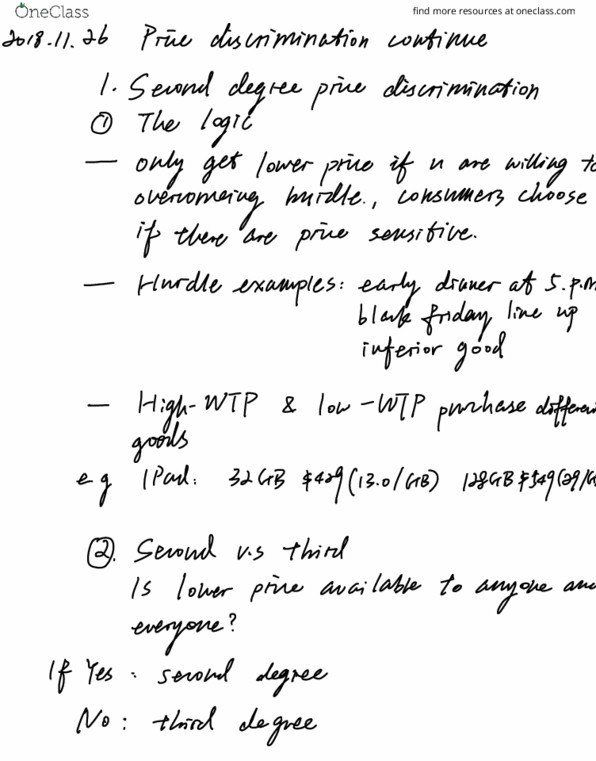 OneClass
find more resources at oneclass.com
2018.11.26 Price discrimination continue
1. Second degree price discrimination
① The logic
— only get lower price if u are willing to
overcomeing hurdle., consumers choose
if there are price sensitive.
— Hurdle examples: early dinner at 5.p.m
black friday line up
inferior good
— High-WTP & low-WTP purchase different
goods
eg IPad: 32GB $429 (13.0/GB) 128GB $549
②. Second v.s third
Is lower price available to anyone and
everyone?
If Yes: second degree
No: third degree